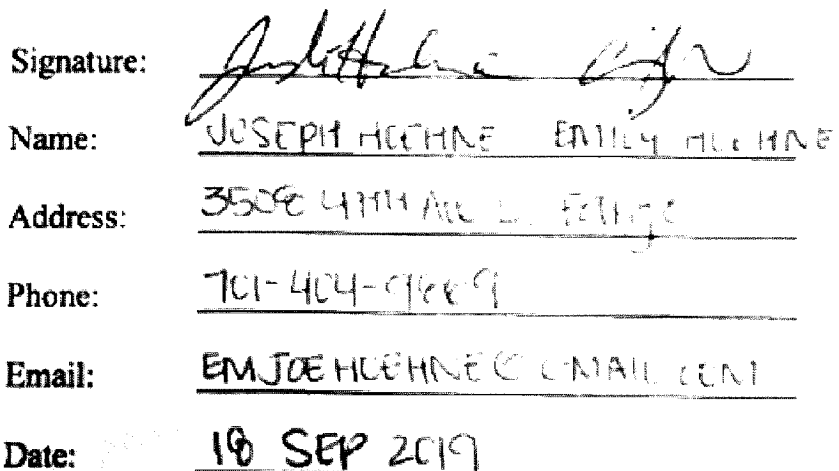 Signature:
Name: JOSEPH HOEHNE EMILY HOEHNE
Address: 3508 4TH
Phone: 701-404-9889
Email: EMJOEHOEHNE@GMAIL.COM
Date: 18 SEP 2019